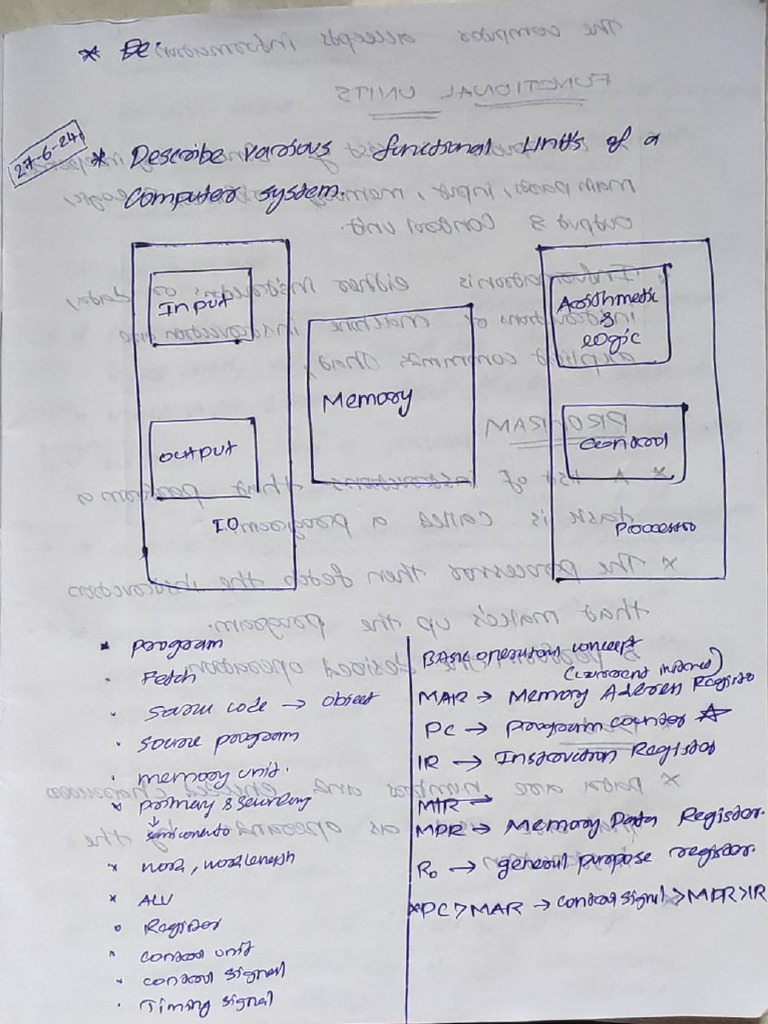 27-6-24
* Describe various functional Units of a
Computer system.
Input
Output
IO
Memory
Arithmetic
&
Logic
Control
Processor
* program
· Fetch
· Source code → object
· source program
· memory unit.
* primary & secondary
* word, wordlength
* ALU
° Register
· control unit
· control signal
· Timing signal
BASIC operations concept
MAR → Memory Address Register
PC → program counter ☆
IR → Instruction Register
MDR → Memory Data Register.
R₀ → general purpose register.
*PC > MAR → control signal > MDR > IR